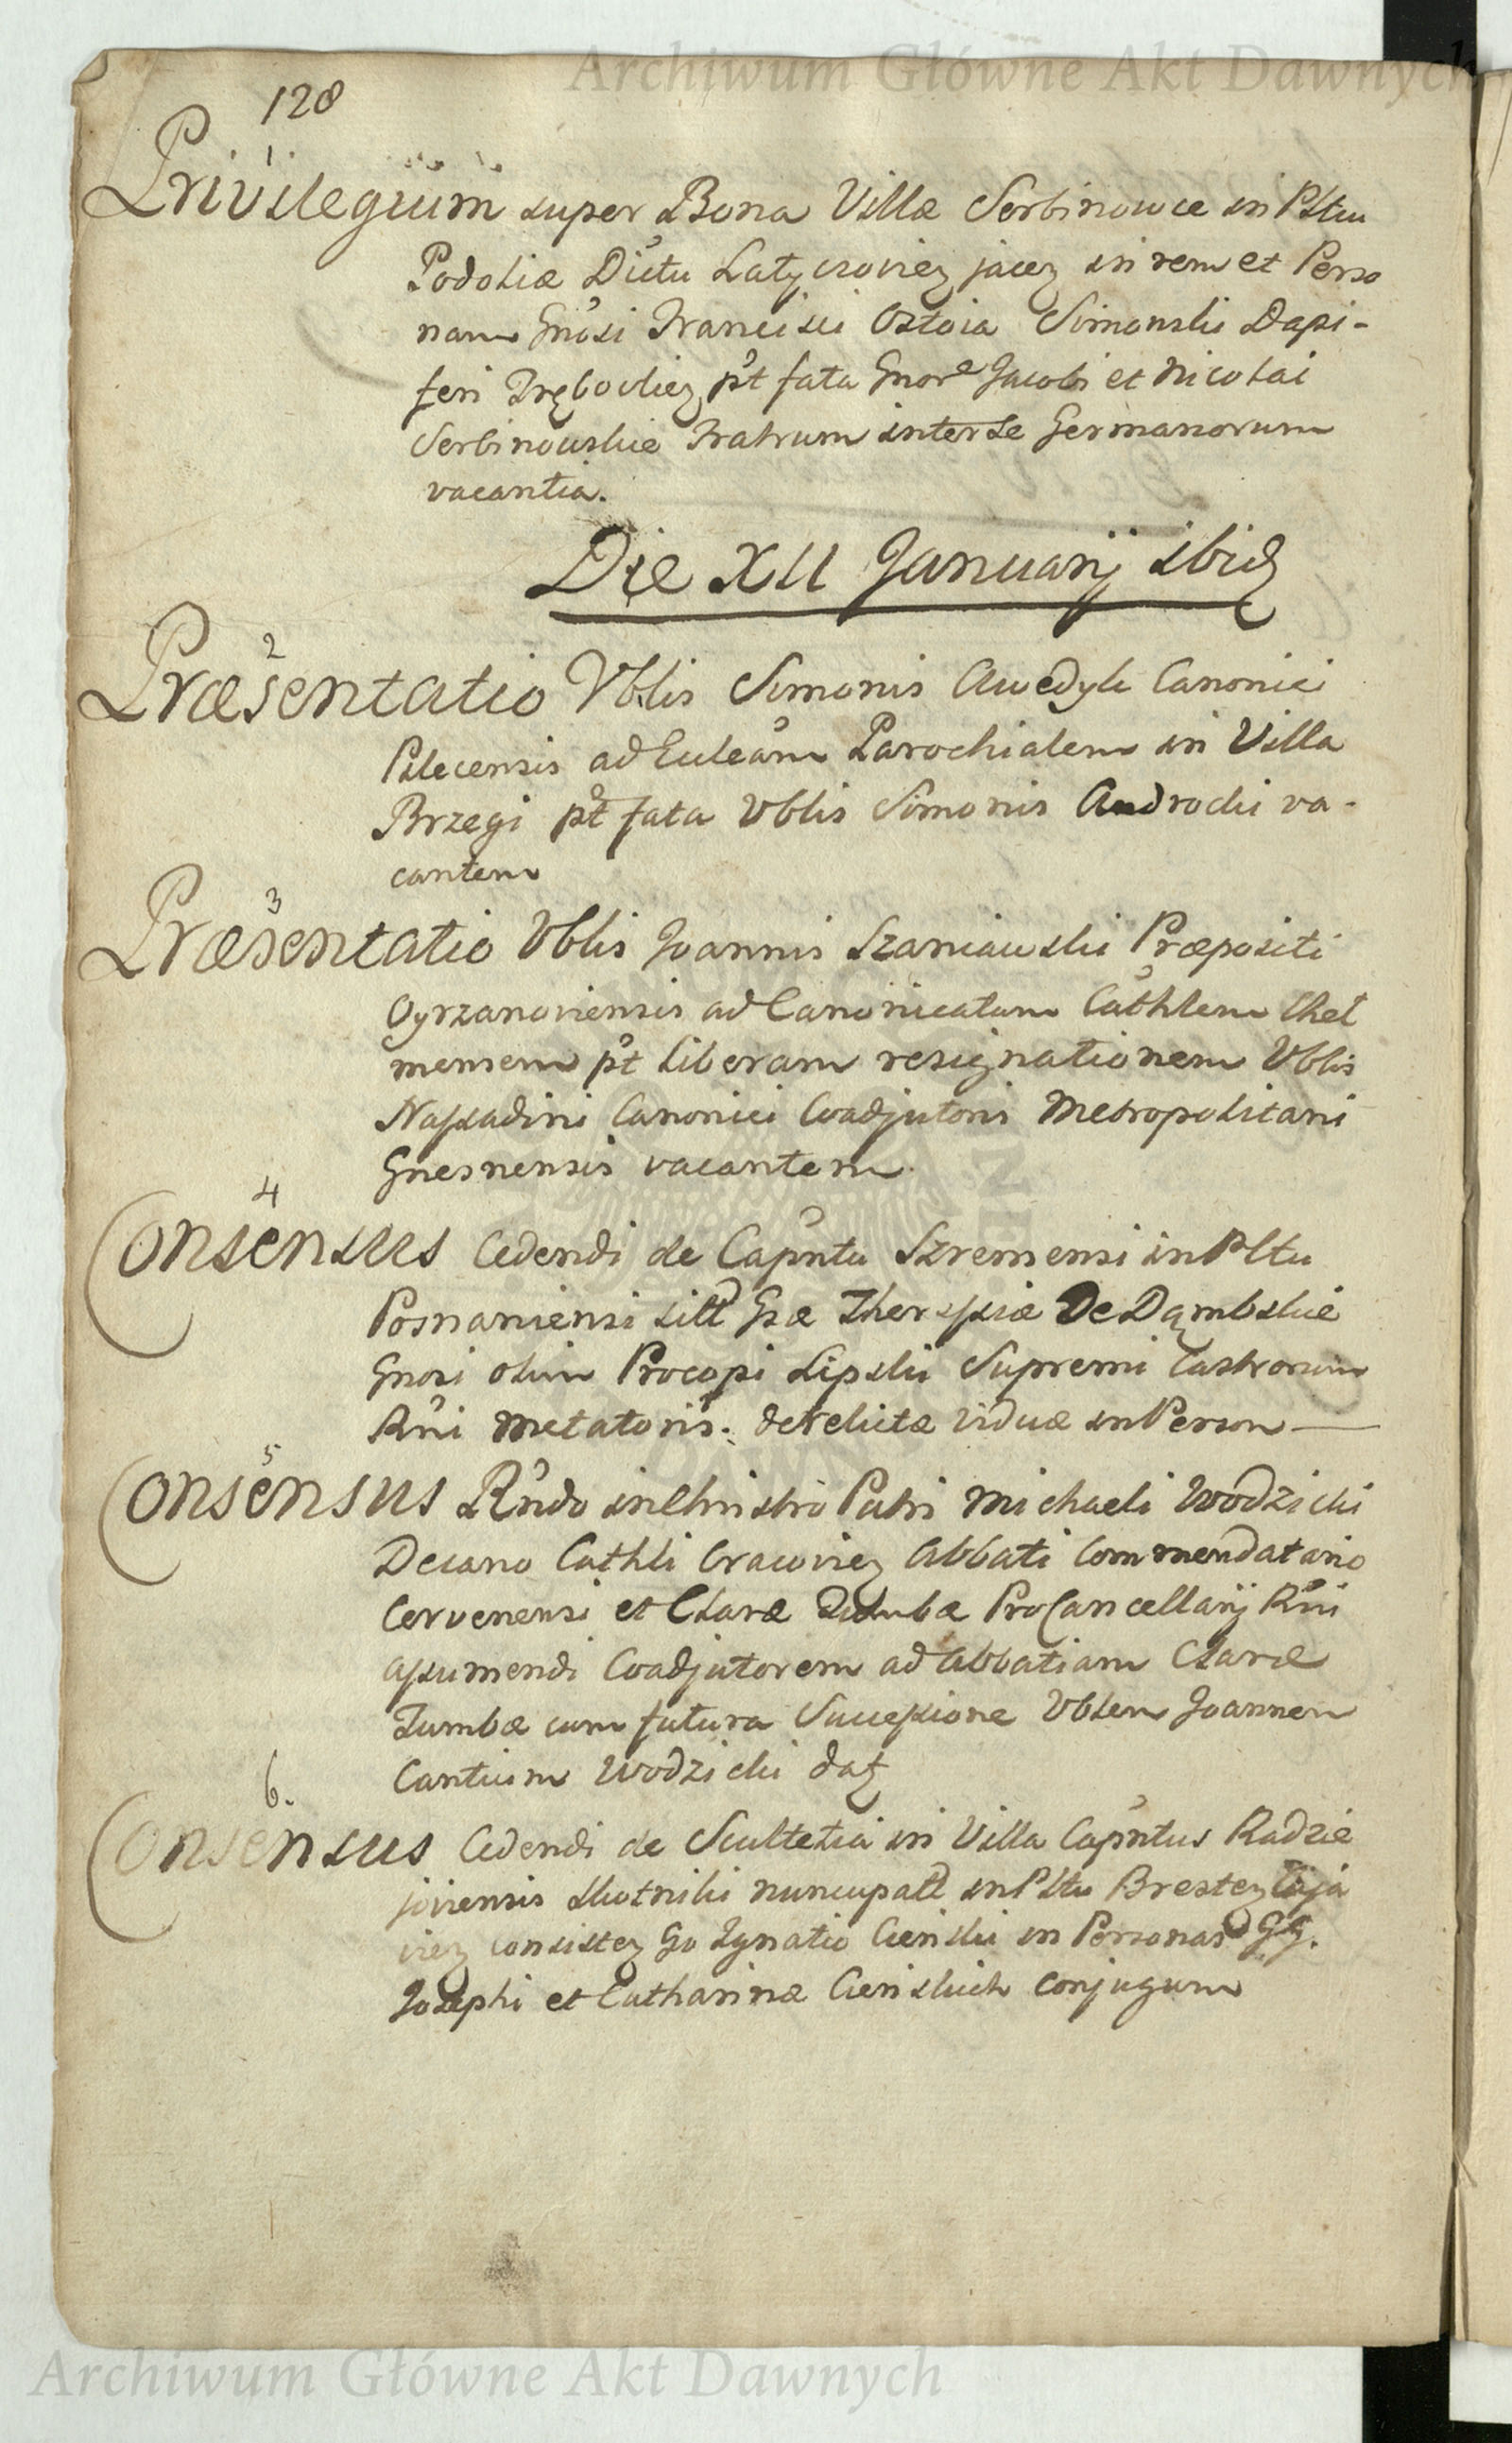 Archiwum Główne Akt Dawnych
128
1
Privilegium super Bona Villæ Serbinowce in Pltu
Podoliæ Dictu Latyczoviez jacez in rem et Perso
nam Gnosi Francisci Ostoia Simonski Dapi-
feri Trębovliez pt fata Gnor Jacobi et Nicolai
Serbinowskie Fratrum inter se Germanorum
vacantia.
Die XII Januarij ibid
2
Præsentatio Vblis Simonis Awedyk Canonici
Pilecensis ad Eccleam Parochialem in Villa
Brzegi pt fata Vblis Simonis Androchi va-
cantem
3
Præsentatio Vblis Joannis Szaniawski Præpositi
Oyrzanoviensis ad Canonicatum Cathlem Chel
mensem pt liberam resignationem Vblis
Nassadini Canonici Coadjutoris Metropolitani
Gnesnensis vacantem.
4
Consensus Cedendi de Capntu Szremensi in Pltu
Posnaniensi sitt Gsæ Theressiæ De Dąmbskie
Gnosi olim Procopi Lipski Supremi Castrorum
Rni Metatoris. derelictæ viduæ in Person
5
Consensus Rndo in Christo Patri Michaeli Wodzicki
Decano Cathli Cracoviez Abbati Commendatario
Cervenensi et Claræ Tumbæ ProCancellarij Rni
assumendi Coadjutorem ad Abbatiam Claræ
Tumbæ cum futura Successione Vblem Joannem
Cantium Wodzicki datz
6.
Consensus Cedendi de Scultetia in Villa Capntus Radzie
joviensis Skotniki nuncupatt in Pltu Brestez Cuja
viez consistez Go Ignatio Cienski in Personas GG.
Josephi et Catharinæ Cienskich Conjugum
Archiwum Główne Akt Dawnych